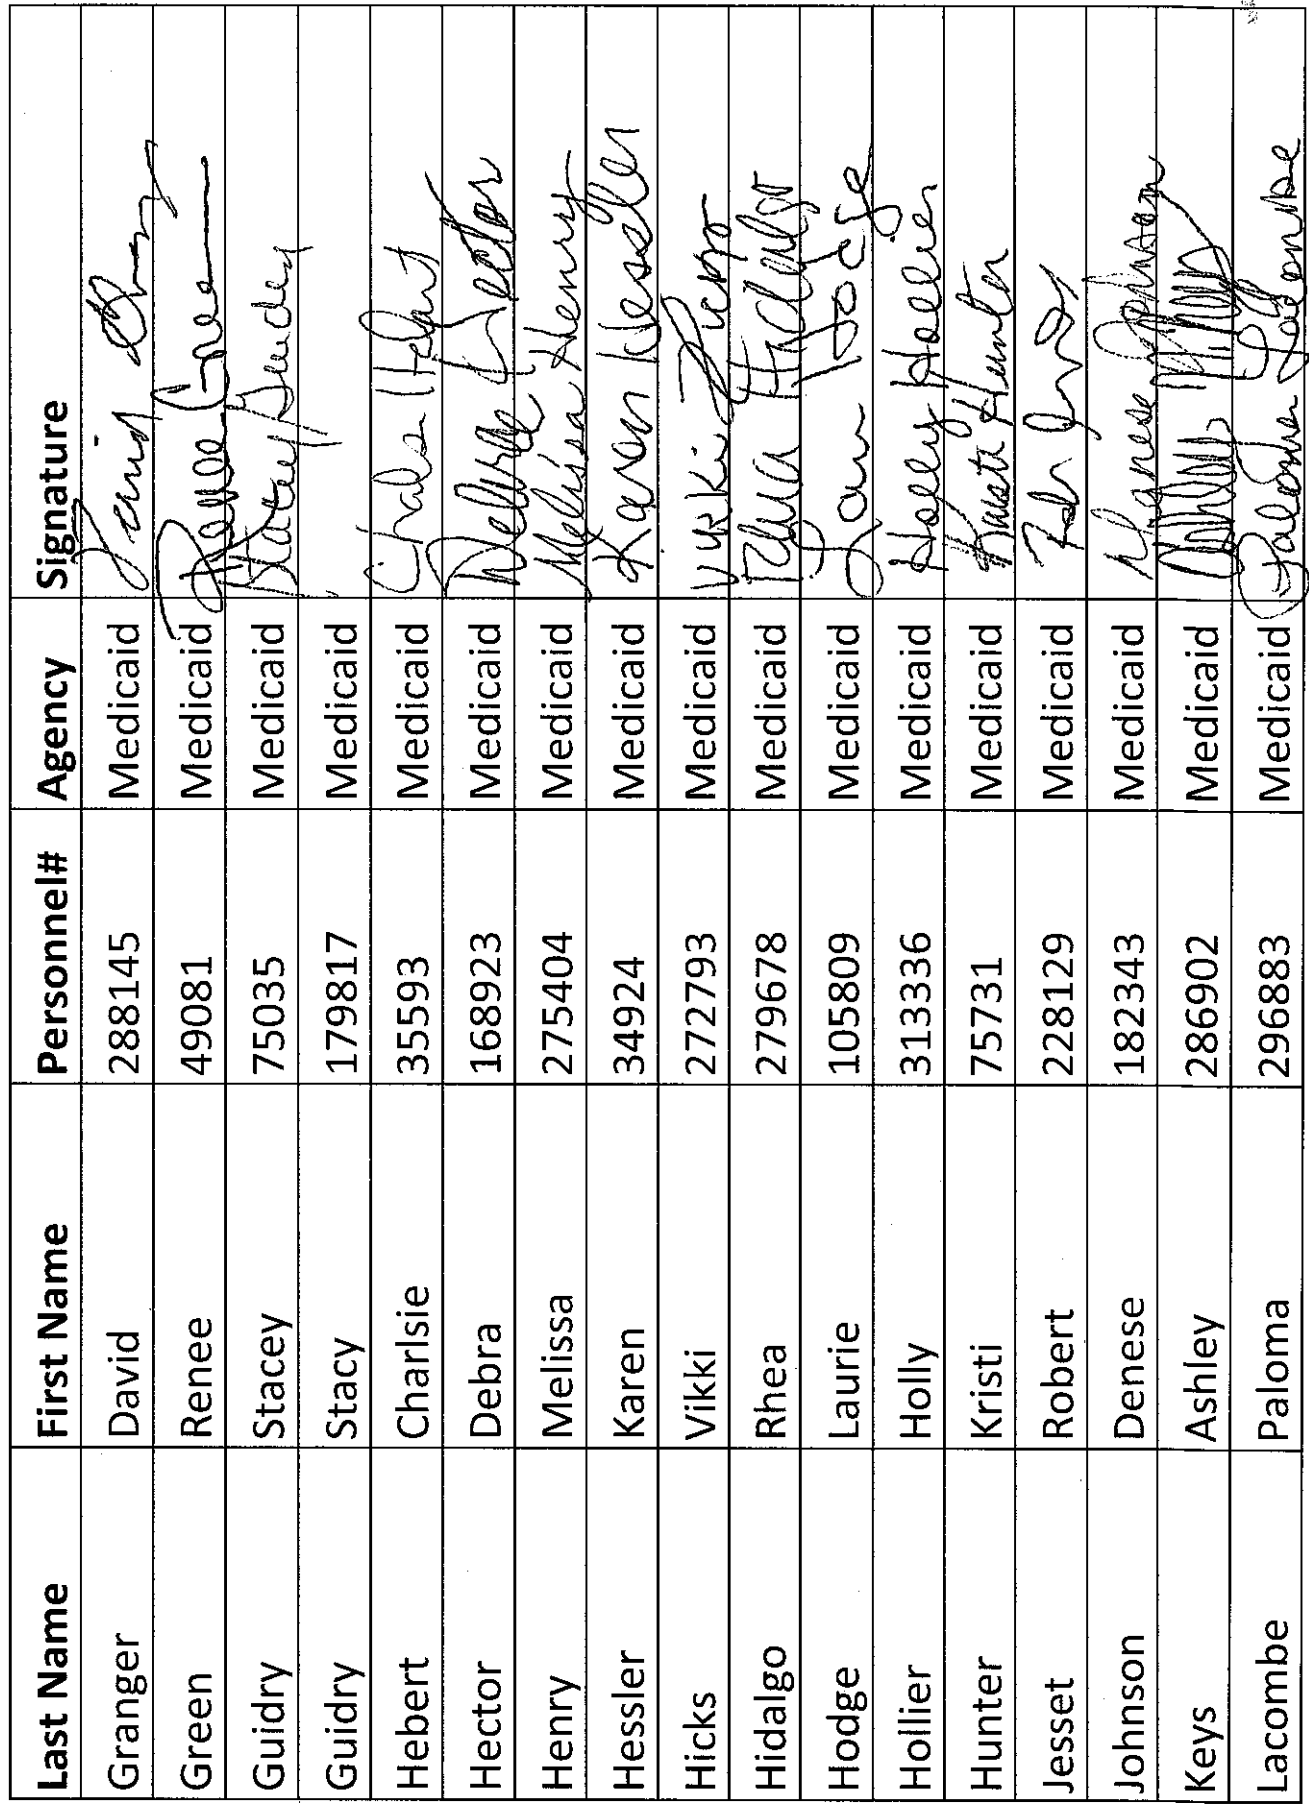 Last Name First Name Personnel# Agency Signature
Granger David 288145 Medicaid
Green Renee 49081 Medicaid Renee Green
Guidry Stacey 75035 Medicaid Stacey Guidry
Guidry Stacy 179817 Medicaid
Hebert Charlsie 35593 Medicaid
Hector Debra 168923 Medicaid
Henry Melissa 275404 Medicaid Melissa Henry
Hessler Karen 34924 Medicaid Karen Hessler
Hicks Vikki 272793 Medicaid Vikki Hicks
Hidalgo Rhea 279678 Medicaid Rhea Hidalgo
Hodge Laurie 105809 Medicaid
Hollier Holly 313336 Medicaid Holly Hollier
Hunter Kristi 75731 Medicaid Kristi Hunter
Jesset Robert 228129 Medicaid
Johnson Denese 182343 Medicaid Denese Johnson
Keys Ashley 286902 Medicaid
Lacombe Paloma 296883 Medicaid Paloma Lacombe